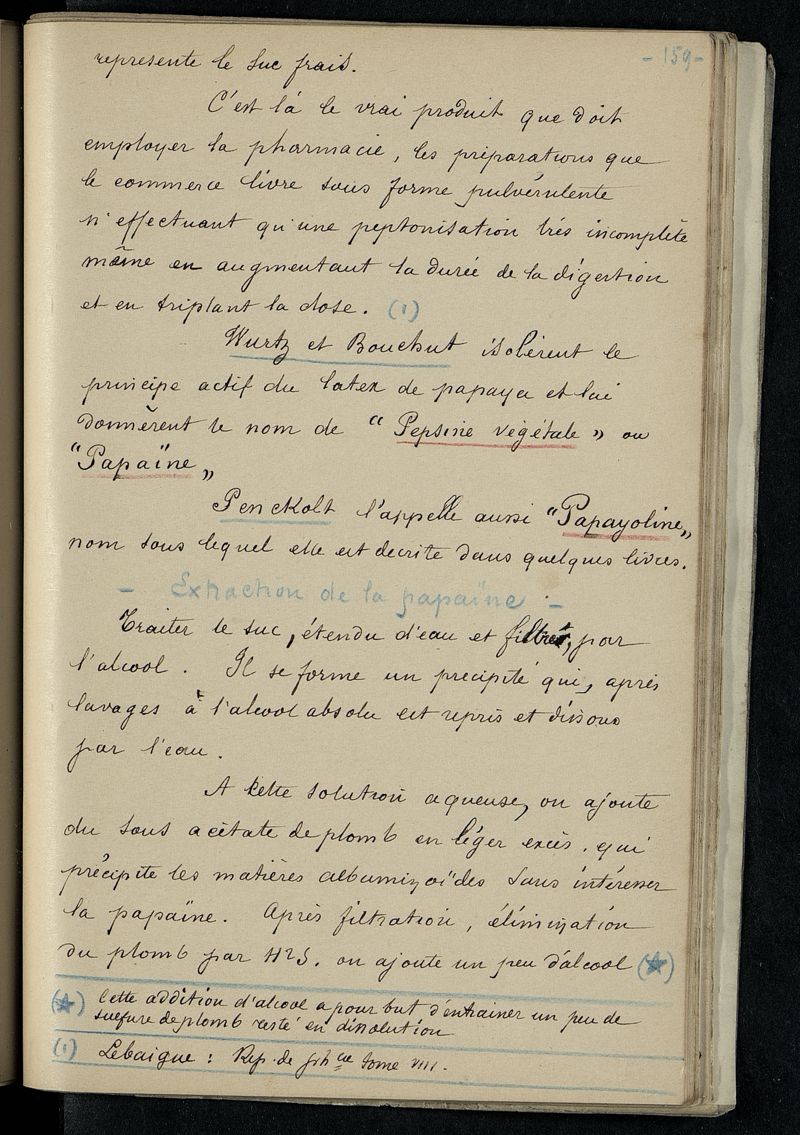 - 159 -
represente le suc frais.
C'est là le vrai produit que doit
employer la pharmacie, les préparations que
le commerce livre sous forme pulvérulente
n'effectuant qu'une peptonisation très incomplète
même en augmentant la durée de la digestion
et en triplant la dose. (1)
Wurtz et Bouchut isolèrent le
principe actif du latex de papaya et lui
donnèrent le nom de "Pepsine végétale" ou
"Papaïne"
Penckolt l'appelle aussi "Papayoline"
nom sous lequel elle est decrite dans quelques livres.
- Extraction de la papaïne -
Traiter le suc, étendu d'eau et filtré, par
l'alcool. Il se forme un precipité qui, après
lavages à l'alcool absolu est repris et dissous
par l'eau.
A cette solution aqueuse, on ajoute
du sous acétate de plomb en léger excès, qui
précipite les matières albuminoïdes sans intéresser
la papaïne. Après filtration, élimination
du plomb par H2S. on ajoute un peu d'alcool (★)
(★) Cette addition d'alcool a pour but d'entrainer un peu de
sulfure de plomb resté en dissolution
(1) Lebaigue : Rep. de phcie tome VIII.